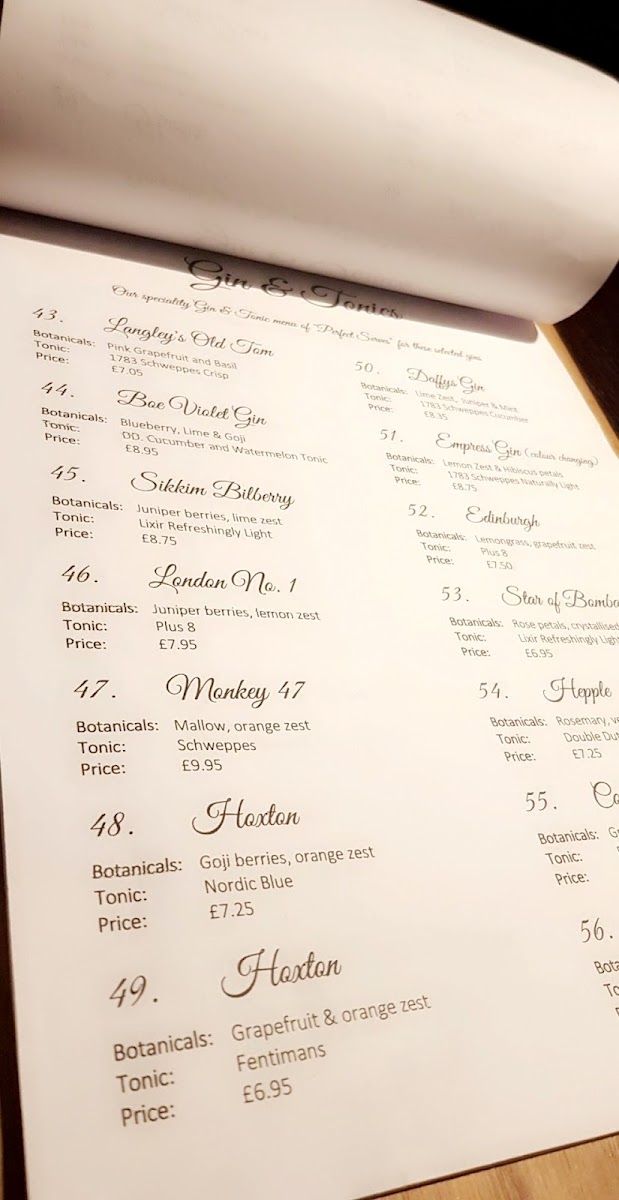 Gin & Tonics
Our speciality Gin & Tonic menu of "Perfect Serves" for these selected gins
43. Langley's Old Tom
Botanicals: Pink Grapefruit and Basil
Tonic: 1783 Schweppes Crisp
Price: £7.05
44. Boe Violet Gin
Botanicals: Blueberry, Lime & Goji
Tonic: DD. Cucumber and Watermelon Tonic
Price: £8.95
45. Sikkim Bilberry
Botanicals: Juniper berries, lime zest
Tonic: Lixir Refreshingly Light
Price: £8.75
46. London No. 1
Botanicals: Juniper berries, lemon zest
Tonic: Plus 8
Price: £7.95
47. Monkey 47
Botanicals: Mallow, orange zest
Tonic: Schweppes
Price: £9.95
48. Hoxton
Botanicals: Goji berries, orange zest
Tonic: Nordic Blue
Price: £7.25
49. Hoxton
Botanicals: Grapefruit & orange zest
Tonic: Fentimans
Price: £6.95
50. Daffys Gin
Botanicals: Lime Zest, Juniper & Mint
Tonic: 1783 Schweppes Cucumber
Price: £8.35
51. Empress Gin (colour changing)
Botanicals: Lemon Zest & Hibiscus petals
Tonic: 1783 Schweppes Naturally Light
Price: £8.75
52. Edinburgh
Botanicals: Lemongrass, grapefruit zest
Tonic: Plus 8
Price: £7.50
53. Star of Bomba
Botanicals: Rose petals, crystallised
Tonic: Lixir Refreshingly Light
Price: £6.95
54. Hepple
Botanicals: Rosemary, ve
Tonic: Double Dut
Price: £7.25
55. Co
Botanicals: G
Tonic:
Price:
56.
Bota
To